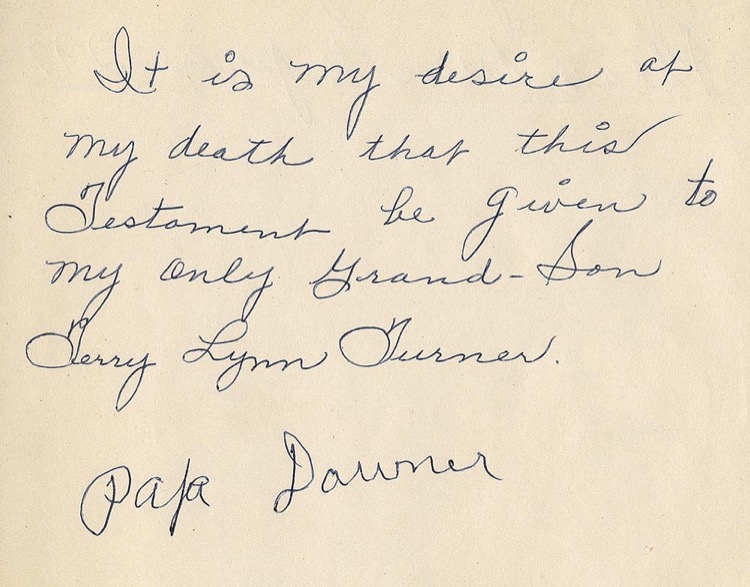 It is my desire at
my death that this
Testament be given to
my only Grand-Son
Terry Lynn Turner.
Papa Downer